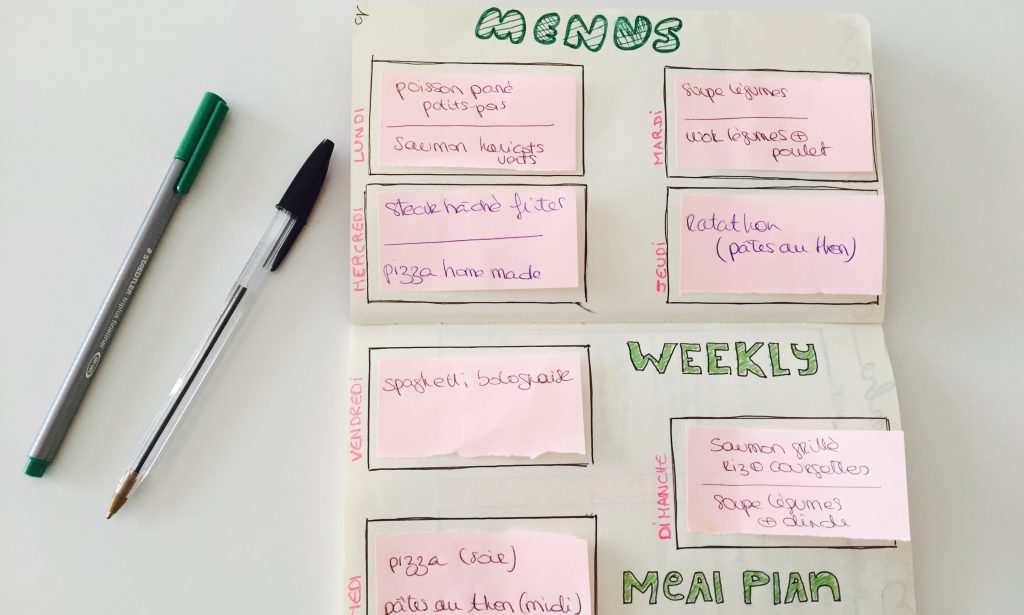 MENUS
LUNDI
poisson pané
petits-pois
saumon haricots
verts
MARDI
soupe légumes
wok légumes ⊕
poulet
MERCREDI
steak hâché frites
pizza home made
JEUDI
Ratathon
(pâtes au thon)
VENDREDI
spaghetti bolognaise
WEEKLY
DIMANCHE
saumon grillé
riz ⊕ courgettes
soupe légumes
⊕ dinde
MEDI
pizza (soir)
pâtes au thon (midi)
MEAL PLAN
STAEDTLER triplus fineliner